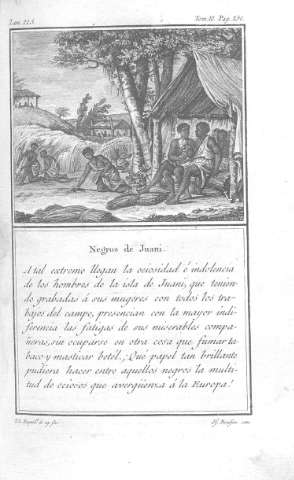 Lam. 225.
Tom. II. Pag. 236.
Negros de Juani.
A tal extremo llegan la ociosidad é indolencia
de los hombres de la isla de Juani, que tenien-
do grabadas á sus mugeres con todos los tra-
bajos del campo, presencian con la mayor indi-
ferencia las fatigas de sus miserables compa-
ñeras, sin ocuparse en otra cosa que fumar ta-
baco y masticar betél. ¡Que papel tan brillante
pudiera hacer entre aquellos negros la multi-
tud de ociosos que avergüenza á la Europa!